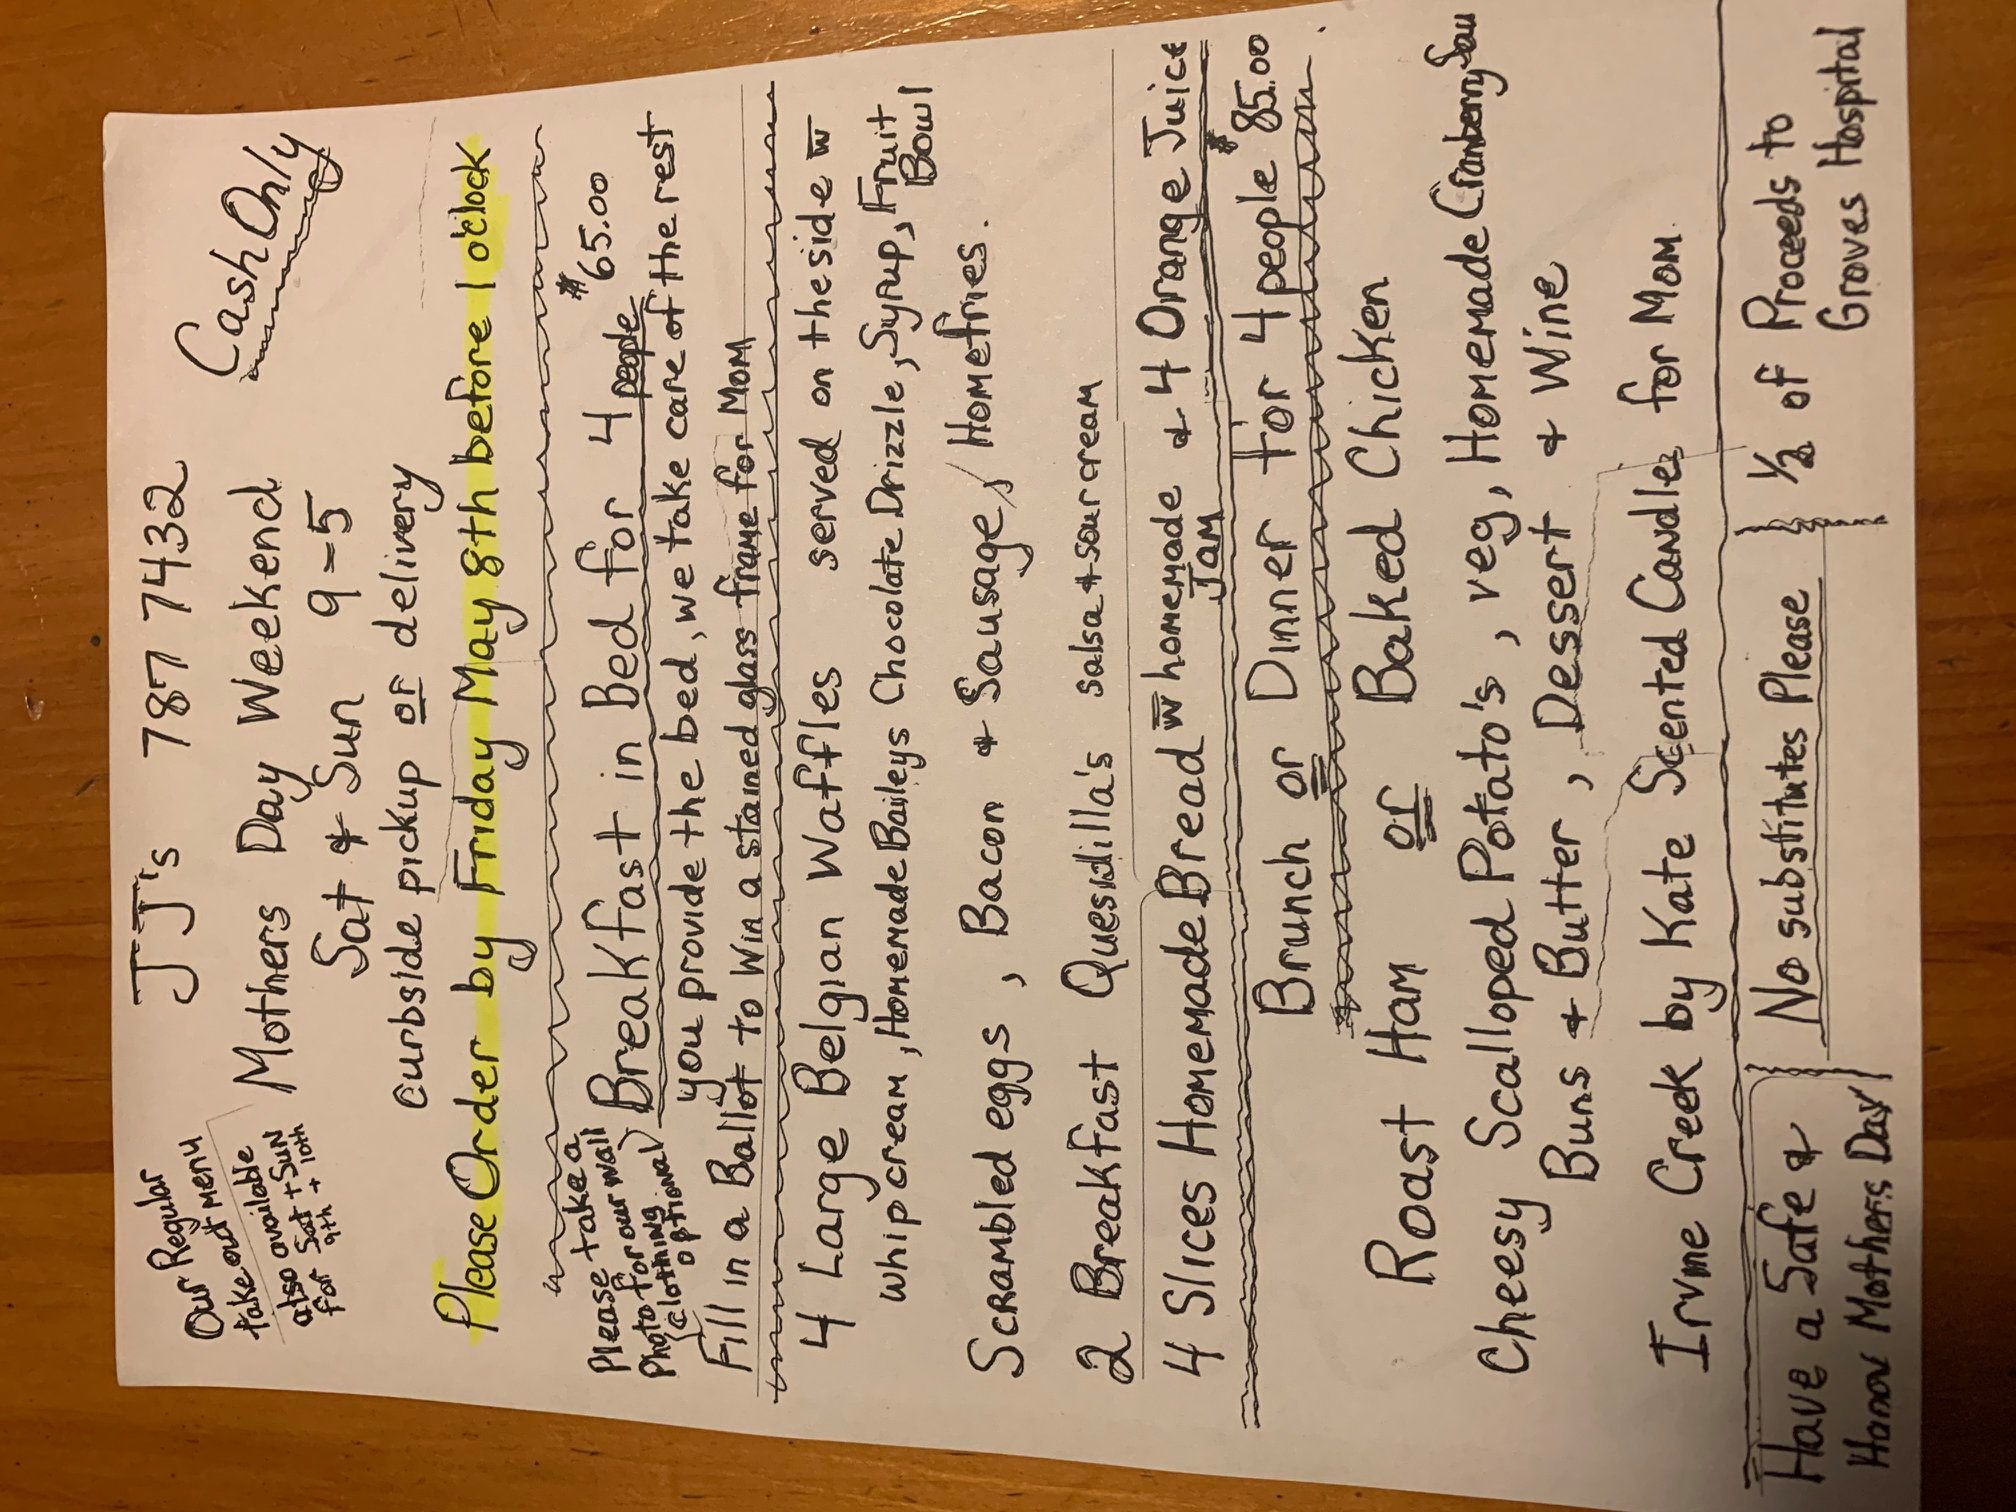 JJ's 787 7432
Cash Only
Our Regular
take out menu
also available
for Sat + Sun
9th + 10th
Mothers Day Weekend
Sat & Sun 9-5
curbside pickup or delivery
Please Order by Friday May 8th before 1 o'clock
Please take a
Photo for our wall
(clothing
optional)
Breakfast in Bed for 4 people $65.00
you provide the bed, we take care of the rest
Fill in a Ballot to Win a stained glass frame for Mom
4 Large Belgian Waffles served on the side w
whip cream, Homemade Baileys Chocolate Drizzle, Syrup, Fruit Bowl
Scrambled eggs, Bacon & Sausage, Homefries.
2 Breakfast Quesidilla's salsa & sour cream
4 Slices Homemade Bread w homemade Jam & 4 Orange Juice
Brunch or Dinner For 4 people $85.00
Roast Ham or Baked Chicken
Cheesy Scalloped Potato's, veg, Homemade Cranberry Sau
Buns & Butter, Dessert & Wine
Irvine Creek by Kate Scented Candles for Mom
Have a Safe &
Honor Mothers Day
No substitutes Please
1/2 of Proceeds to
Groves Hospital